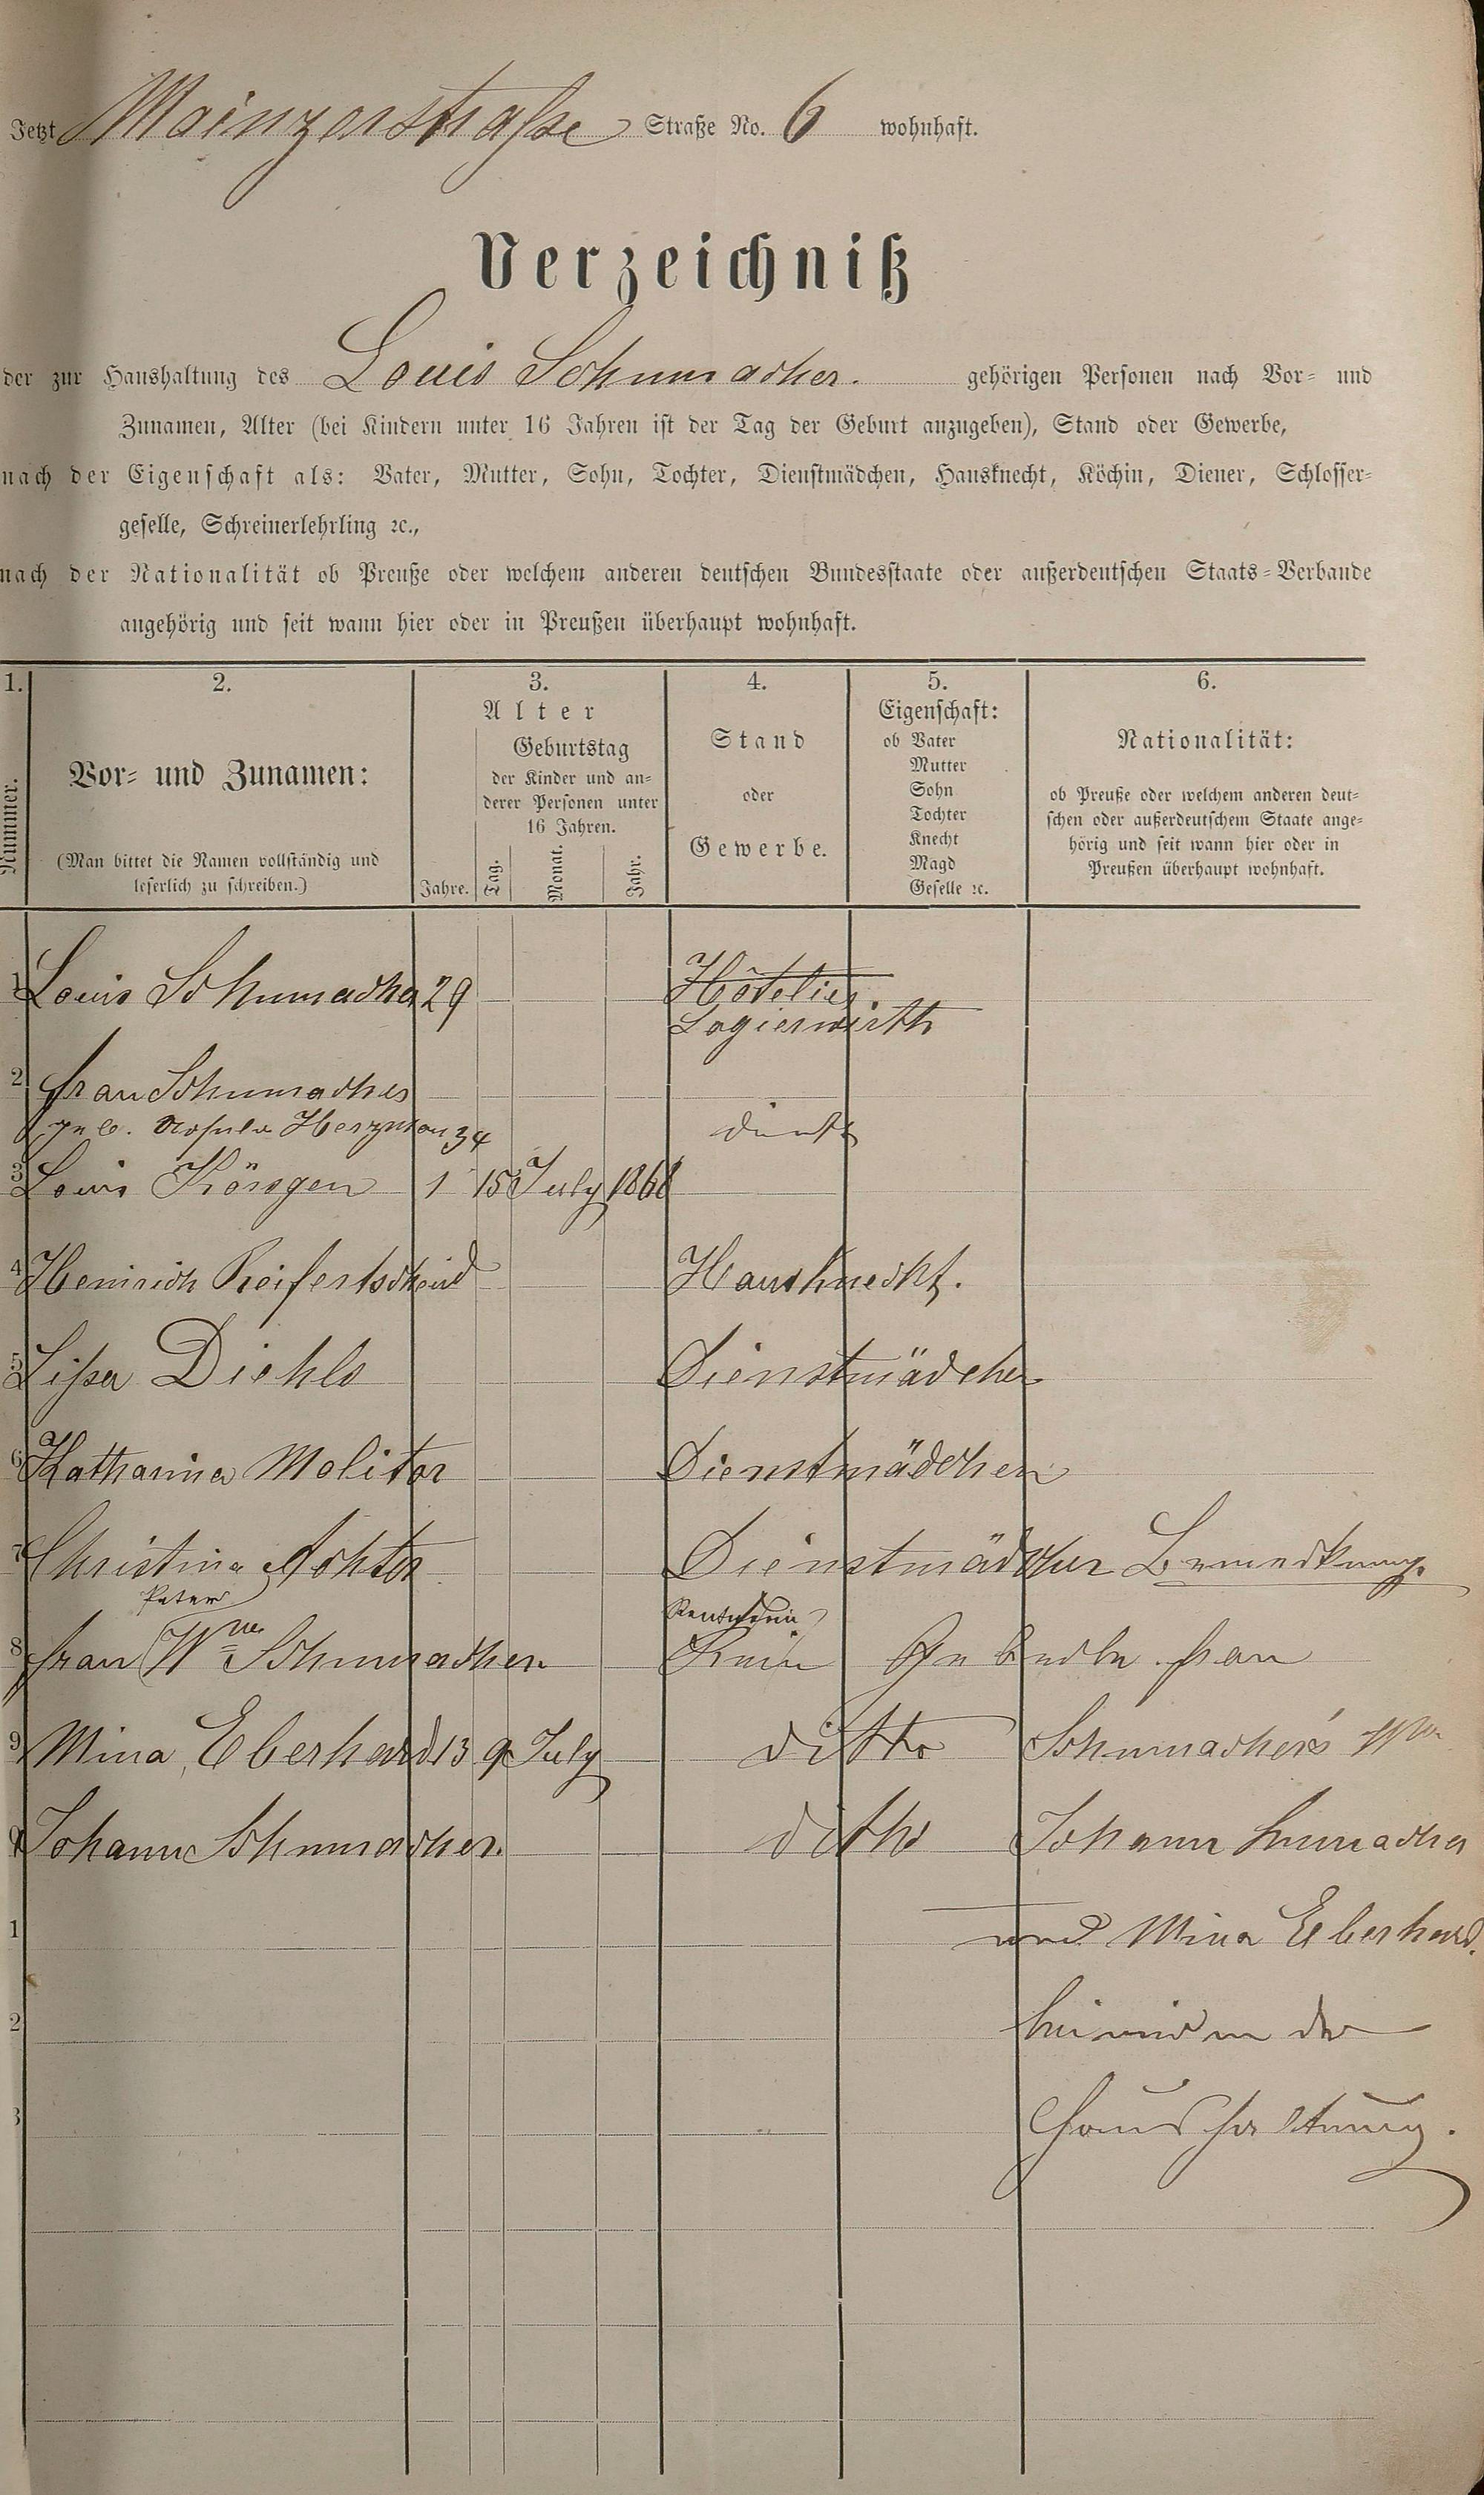 Jetzt Mainzerstraße Straße No. 6 wohnhaft.
Verzeichniß
der zur Haushaltung des Louis Schumacher. gehörigen Personen nach Vor- und
Zunamen, Alter (bei Kindern unter 16 Jahren ist der Tag der Geburt anzugeben), Stand oder Gewerbe,
nach der Eigenschaft als: Vater, Mutter, Sohn, Tochter, Dienstmädchen, Hausknecht, Köchin, Diener, Schlosser-
geselle, Schreinerlehrling ꝛc.,
nach der Nationalität ob Preuße oder welchem anderen deutschen Bundesstaate oder außerdeutschen Staats-Verbande
angehörig und seit wann hier oder in Preußen überhaupt wohnhaft.
1. 2. 3. 4. 5. 6.
Nummer.
Vor- und Zunamen:
(Man bittet die Namen vollständig und
leserlich zu schreiben.)
Alter
Geburtstag
der Kinder und an-
derer Personen unter
16 Jahren.
Jahre. Tag. Monat. Jahr.
Stand
oder
Gewerbe.
Eigenschaft:
ob Vater
Mutter
Sohn
Tochter
Knecht
Magd
Geselle ꝛc.
Nationalität:
ob Preuße oder welchem anderen deut-
schen oder außerdeutschem Staate ange-
hörig und seit wann hier oder in
Preußen überhaupt wohnhaft.
1 Louis Schumacher 29 Hôtelier
Logierwirth
2 Frau Schumacher
geb. 34
3 Louis 1 15 July 1868
4 Heinrich Reifertscheid Hausknecht.
5 Lißa Diehls Dienstmädchen
6 Katharina Molitor Dienstmädchen
7 Christina Achter Dienstmädchen Bemerkung.
Peter Rentnerin
8 Frau Wwe Schumacher Frau
9 Mina Eberhard 13 9 July ditto Schumacher's Wwe
Johann Schumacher. ditto Johann Schumacher
1 und Mina Eberhard.
2
3 Haushaltung.